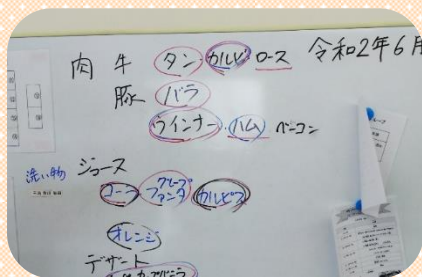 肉 牛 タン カルビ ロース 令和2年6月
豚 バラ
ウインナー ハム ベーコン
洗い物 ジュース
コーラ グレープファンタ カルピス
オレンジ
デザート